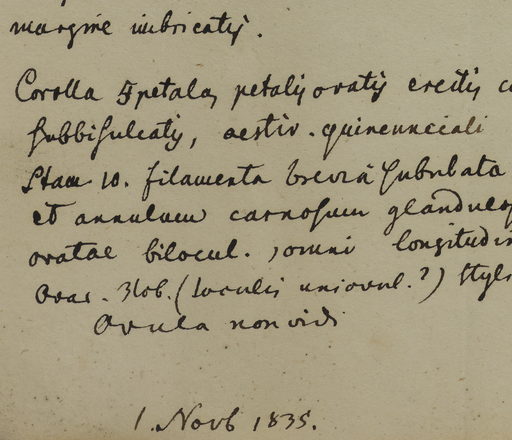 margine imbricatis.
Corolla 5petala, petalis ovatis erectis
subbisulcatis, aestiv. quincunciali
Stam 10. filamenta brevia subulata
et annulum carnosum glandulos
ovatae bilocul., omni longitudin
Ovar. 3lob. (loculis uniovul.?) Styl
Ovula non vidi
1. Novb 1835.